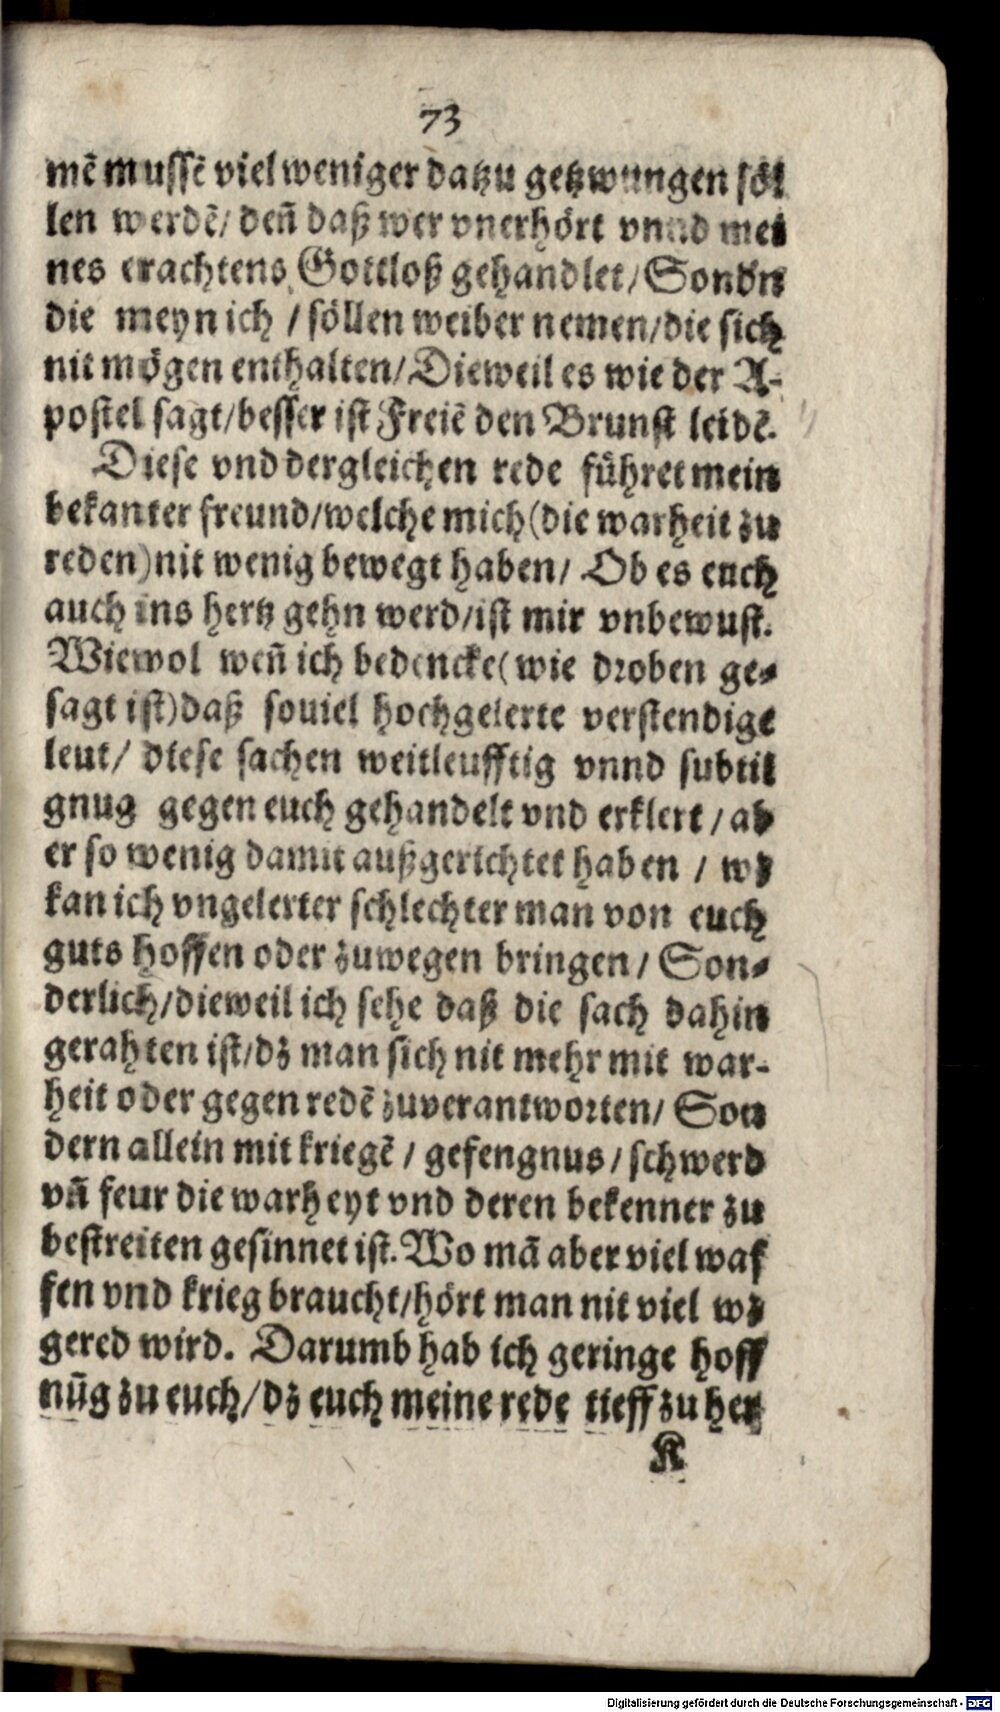 73
mẽ mussẽ viel weniger datzu getzwungen söl
len werdẽ/ deñ daß wer vnerhört vnnd mei
nes erachtens Gottloß gehandlet/ Sondn
die meyn ich / söllen weiber nemen/ die sich
nit mögen enthalten/ Dieweil es wie der A-
postel sagt/ besser ist Freiẽ den Brunst leidẽ.
Diese vnd dergleichen rede führet mein
bekanter freund/ welche mich (die warheit zu
reden) nit wenig bewegt haben/ Ob es euch
auch ins hertz gehn werd/ ist mir vnbewust.
Wiewol weñ ich bedencke (wie droben ge-
sagt ist) daß souiel hochgelerte verstendige
leut/ diese sachen weitleufftig vnnd subtil
gnug gegen euch gehandelt vnd erklert / ab
er so wenig damit außgerichtet haben / wz
kan ich vngelerter schlechter man von euch
guts hoffen oder zuwegen bringen/ Son-
derlich/ dieweil ich sehe daß die sach dahin
gerahten ist/ dz man sich nit mehr mit war-
heit oder gegen redẽ zuverantworten/ Son
dern allein mit kriegẽ / gefengnus / schwerd
vñ feur die warheyt vnd deren bekenner zu
bestreiten gesinnet ist. Wo mã aber viel waf
fen vnd krieg braucht/ hört man nit viel wz
gered wird. Darumb hab ich geringe hoff
nũg zu euch/ dz euch meine rede tieff zu her
K
Digitalisierung gefördert durch die Deutsche Forschungsgemeinschaft - DFG